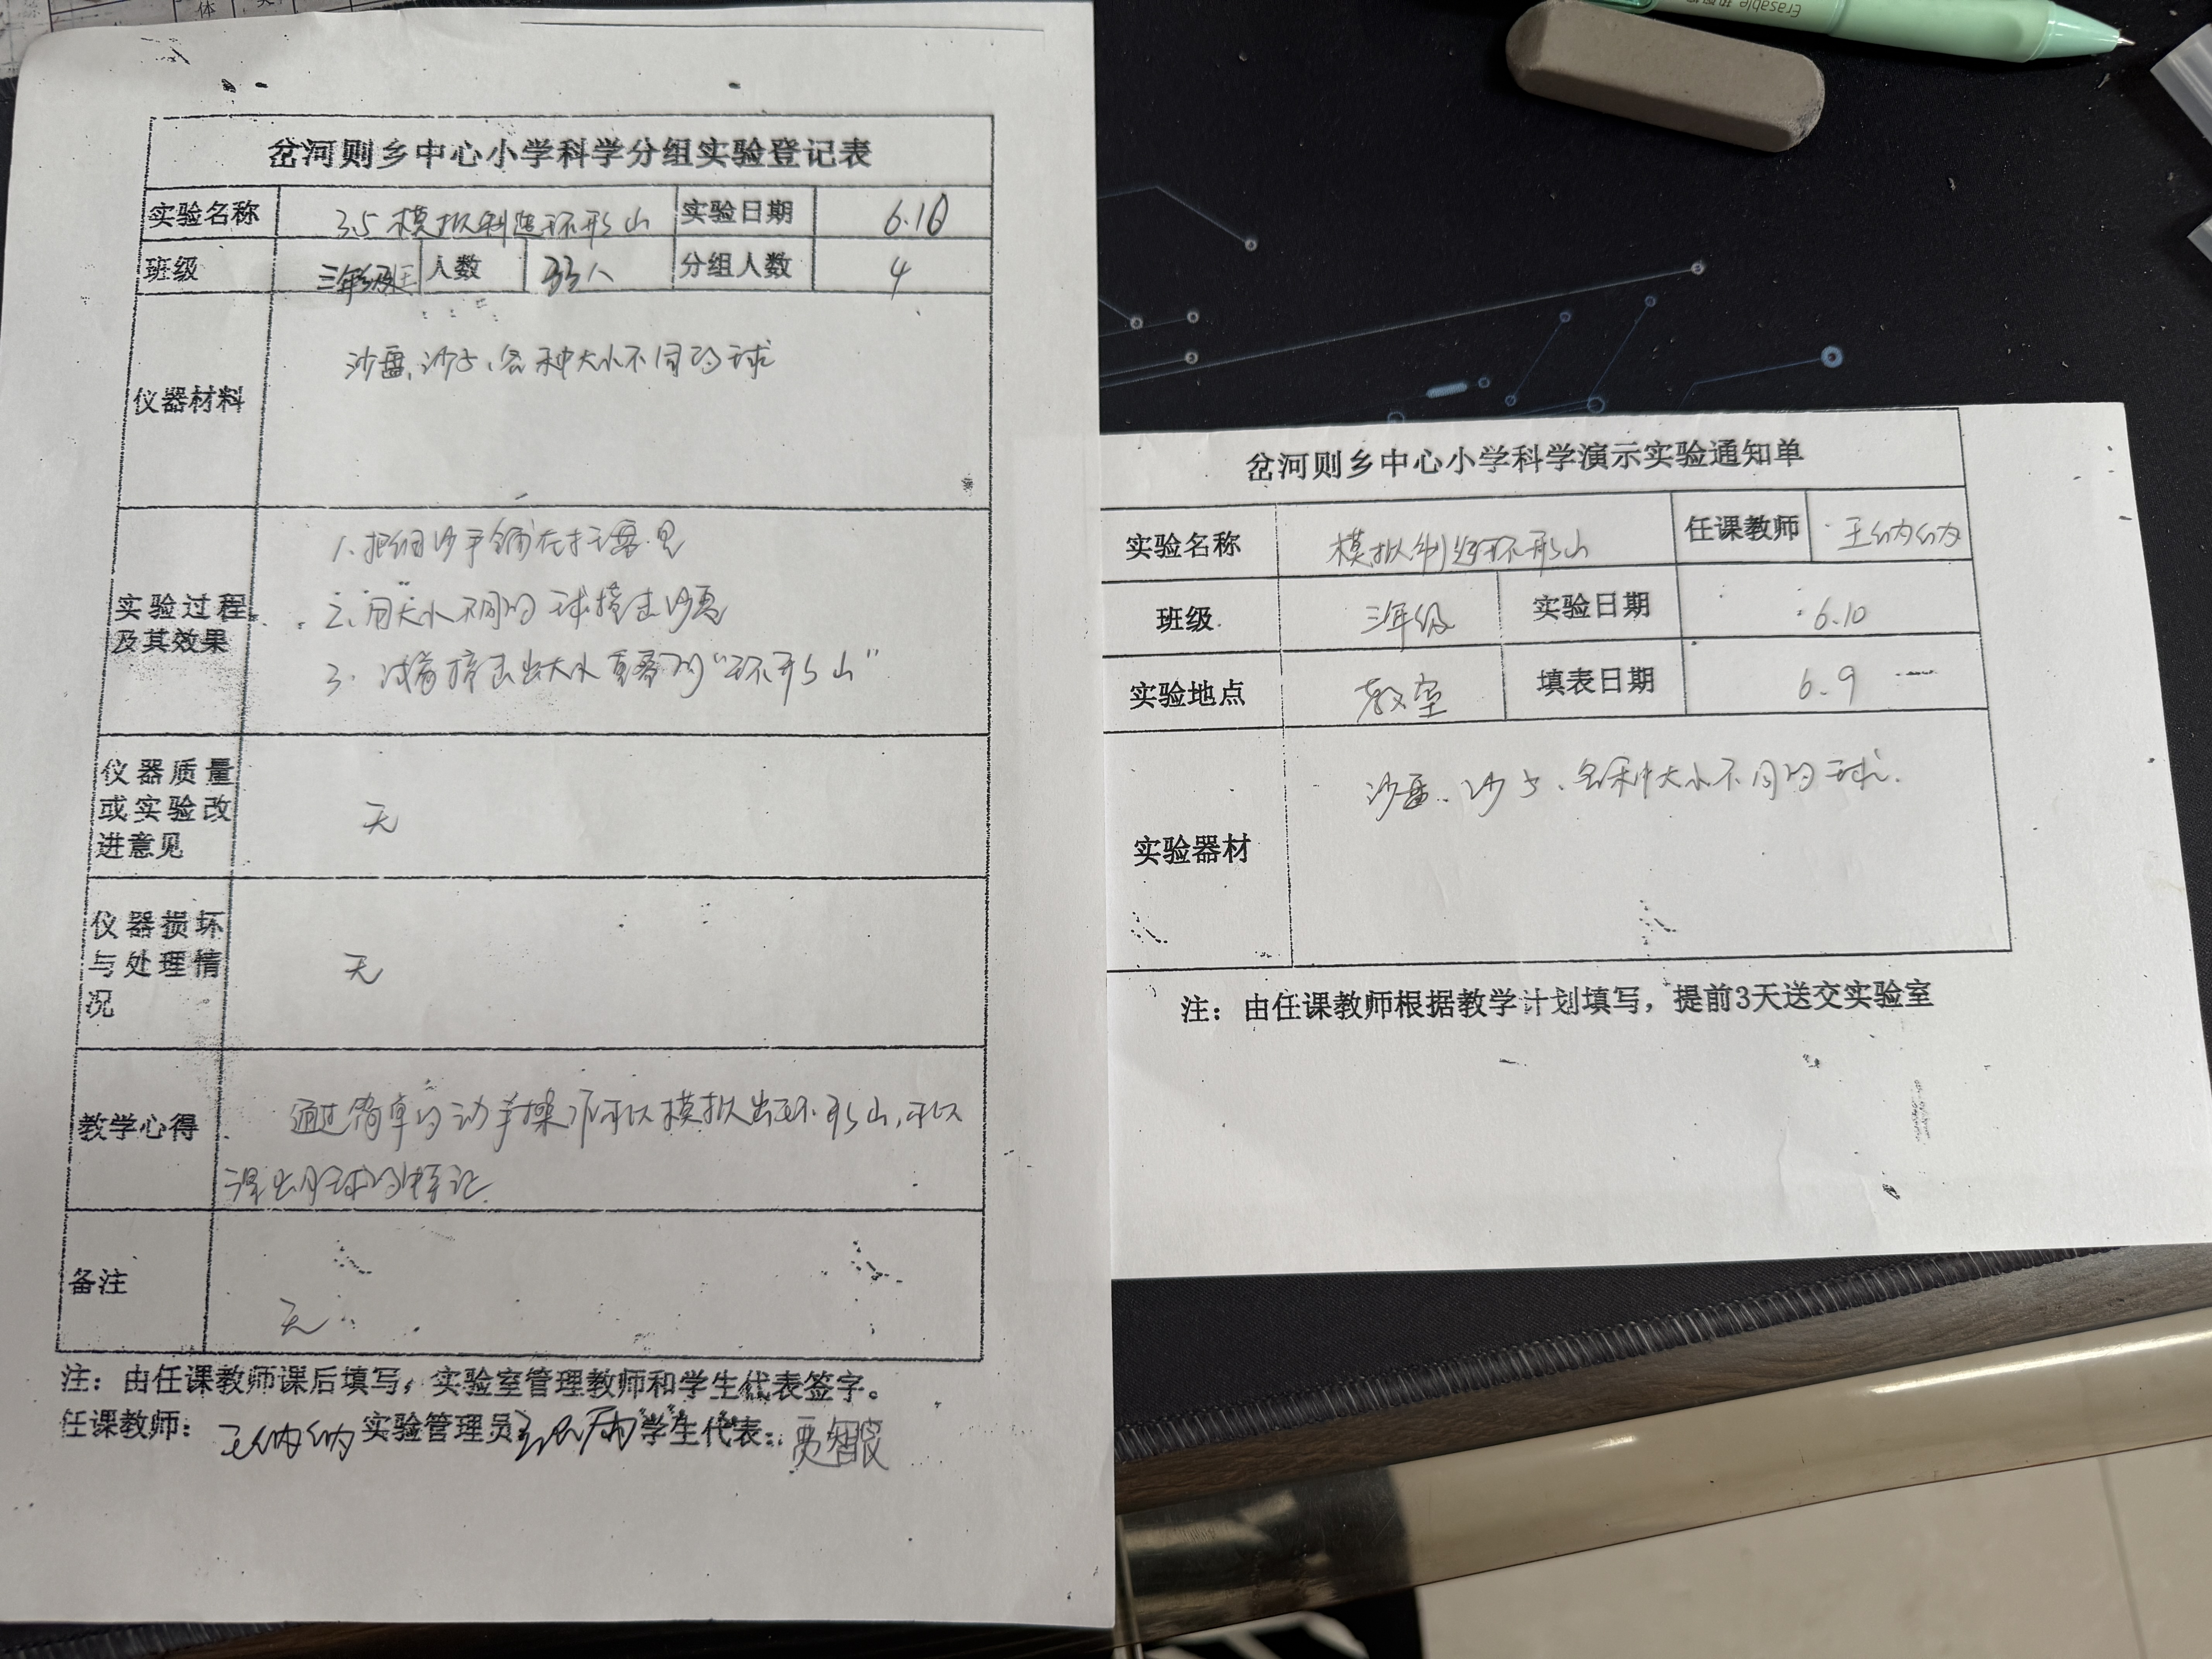 岔河则乡中心小学科学分组实验登记表
实验名称 3.5 模拟制造环形山 实验日期 6.10
班级 三年级 人数 33人 分组人数 4
仪器材料 沙盘、沙子、各种大小不同的球
实验过程及其效果
1、把细沙平铺在沙盘里
2、用大小不同的球撞击沙面
3、试着撞击出大小重叠的“环形山”
仪器质量或实验改进意见 无
仪器损坏与处理情况 无
教学心得 通过简单的动手操作可以模拟出环形山,可以
得出月球的特征
备注 无
注：由任课教师课后填写，实验室管理教师和学生代表签字。
任课教师：王纳纳 实验管理员 学生代表：贾智
岔河则乡中心小学科学演示实验通知单
实验名称 模拟制造环形山 任课教师 王纳纳
班级 三年级 实验日期 6.10
实验地点 教室 填表日期 6.9
实验器材 沙盘、沙子、各种大小不同的球.
注：由任课教师根据教学计划填写，提前3天送交实验室
Erasable
体